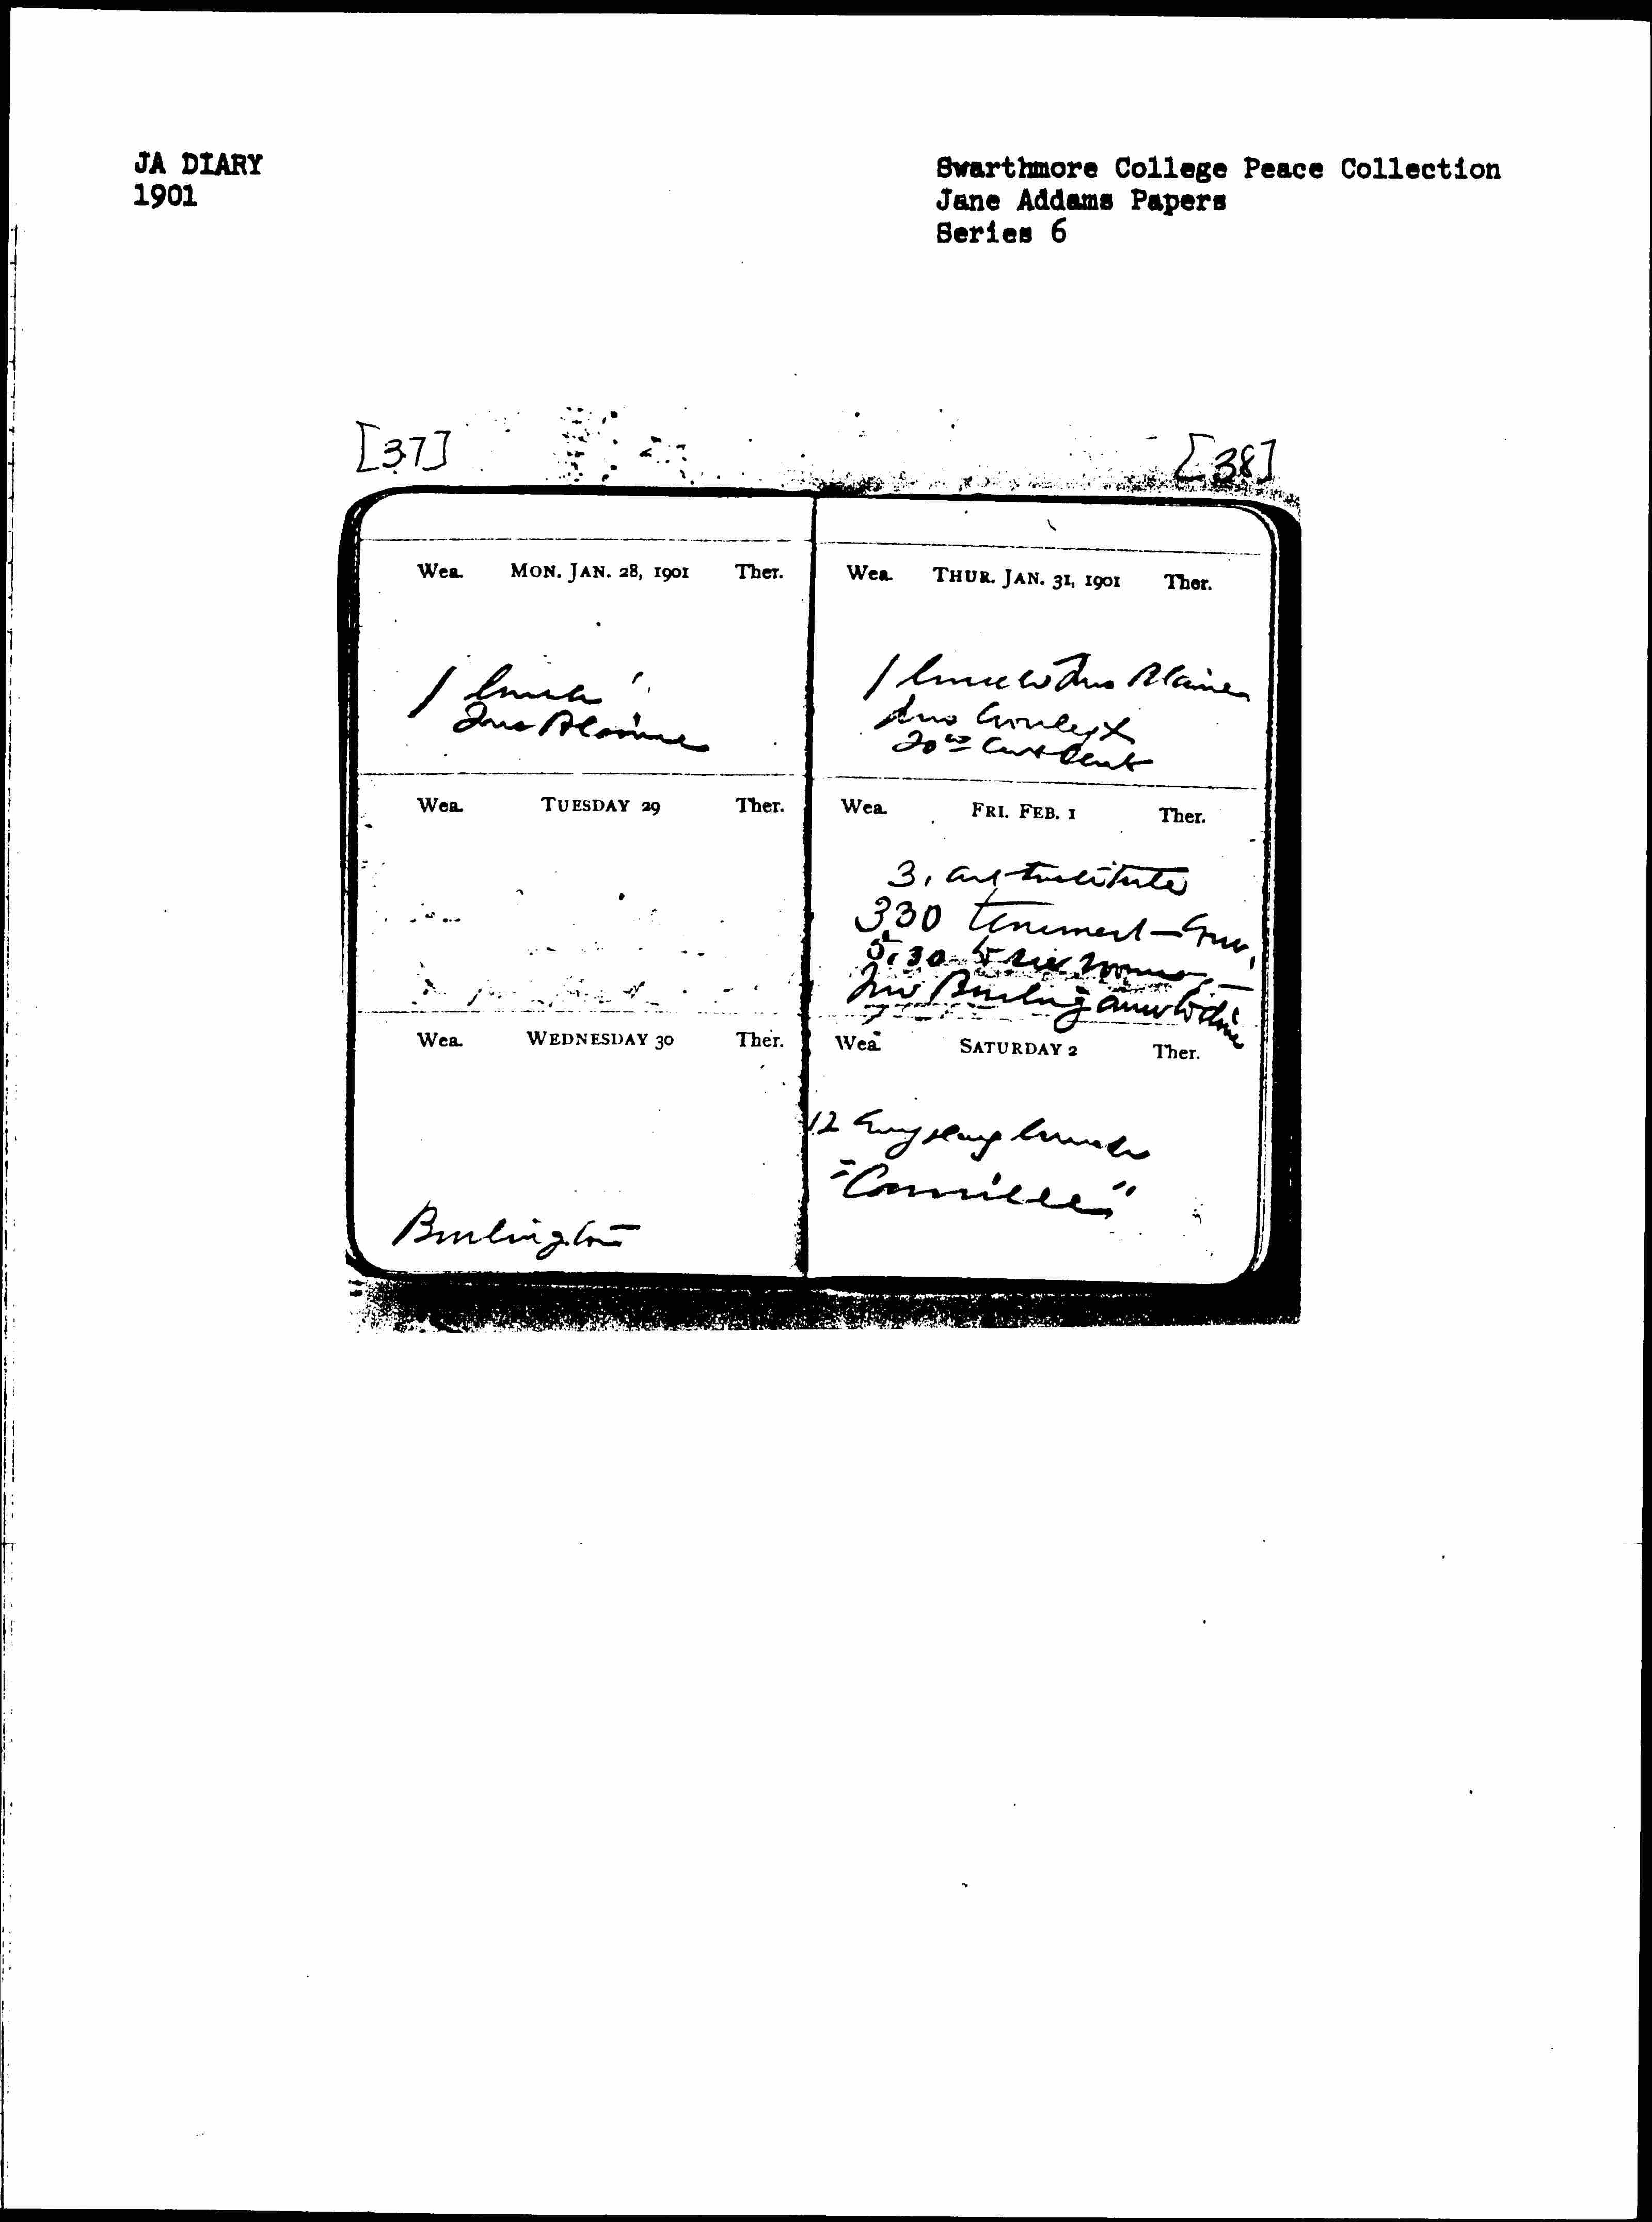 JA DIARY
1901
Swarthmore College Peace Collection
Jane Addams Papers
Series 6
[37]
Wea. MON. JAN. 28, 1901 Ther.
1 lunch
Mrs Blaine
Wea. TUESDAY 29 Ther.
Wea. WEDNESDAY 30 Ther.
Burlington
[38]
Wea. THUR. JAN. 31, 1901 Ther.
1 Mrs Blaine
Mrs
20
Wea. FRI. FEB. 1 Ther.
3, Art Institute
330 tenement
5,30
Mrs
Wea. SATURDAY 2 Ther.
12 lunch
"Camille"